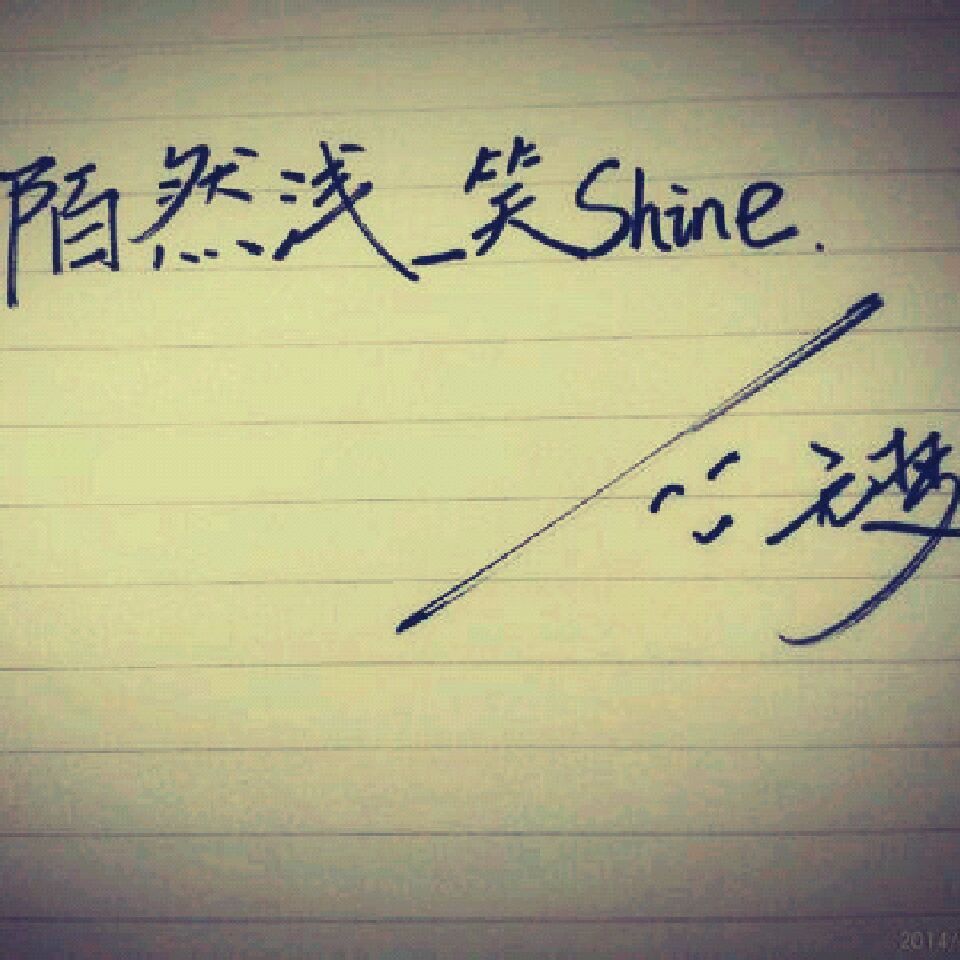 陌然浅_笑Shine.
梦
2014/